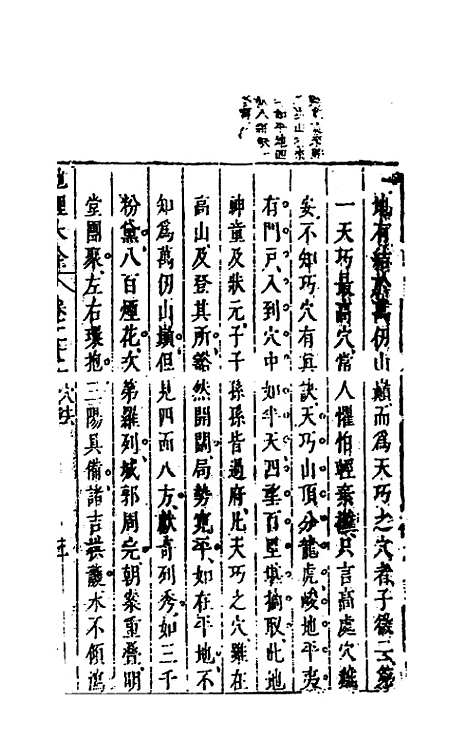 地有結於萬仞山巔而爲天巧之穴者子微云第
一天巧最高穴常人懼怕輕棄撇只言高處穴難
安不知巧穴有真訣天巧山頂分龍虎峻地平夷
有門戸入到穴中如半天四望百里堪摘取此地
神童及狀元子子孫孫皆過府凡天巧之穴雖在
高山及登其所豁然開闊局勢寬平如在平地不
知爲萬仞山巔但見四面八方獻奇列秀如三千
粉黛八百煙花次第羅列城郭周完朝案重疊明
堂團聚左右環抱三陽具備諸吉拱護水不傾瀉
地理大全 穴法